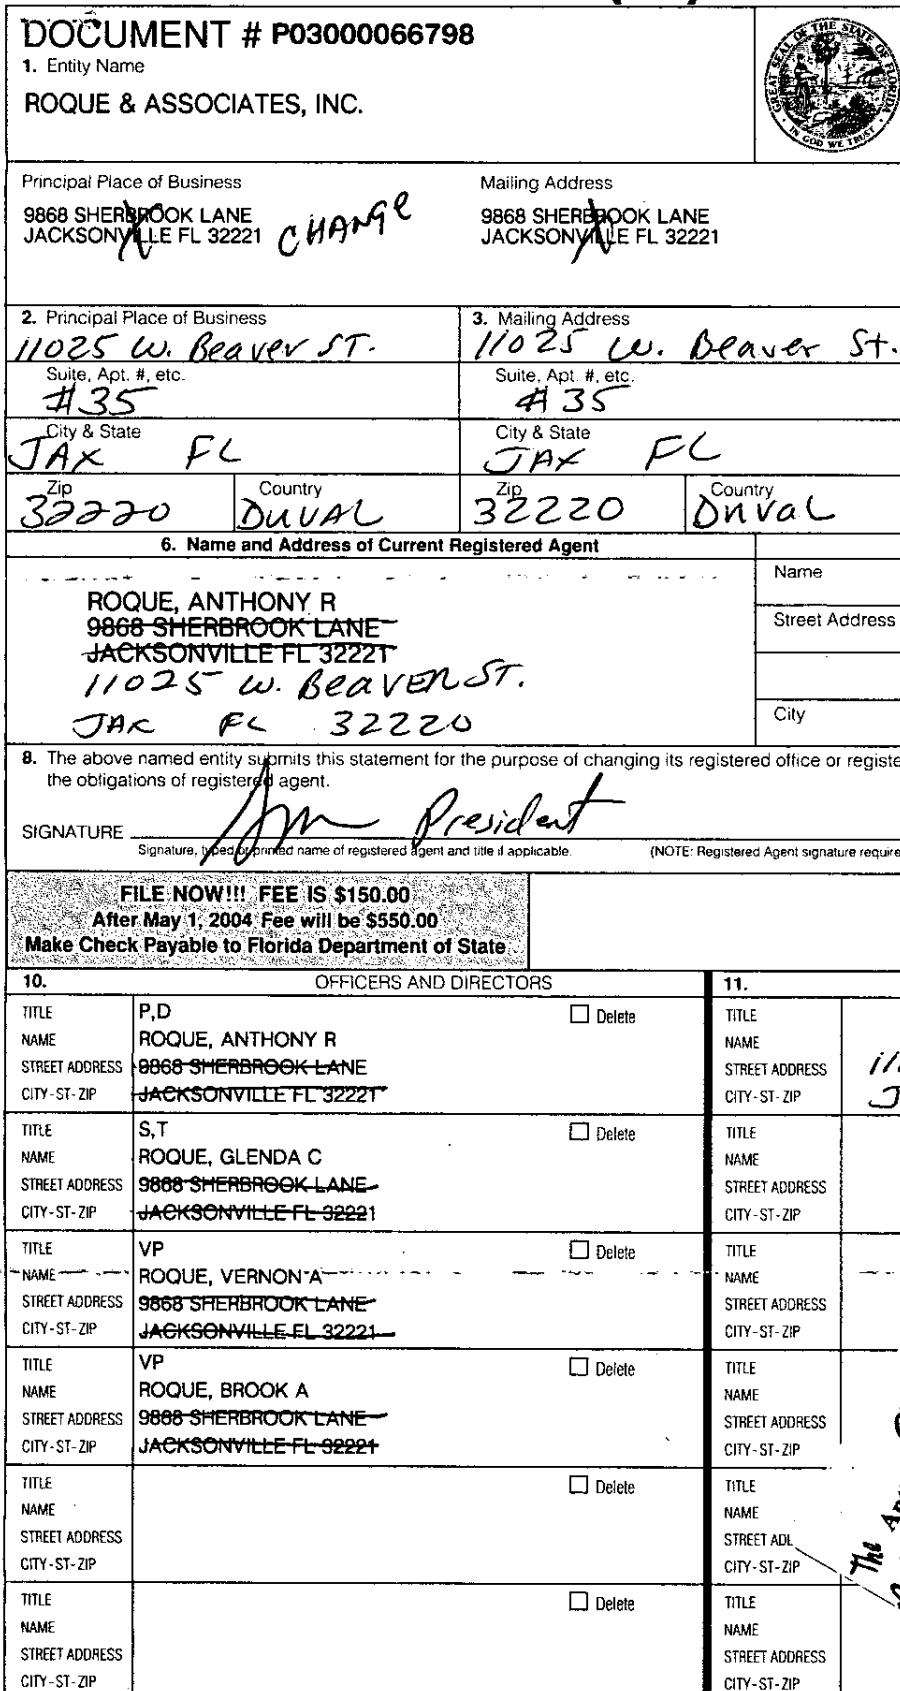 DOCUMENT # P03000066798
1. Entity Name
ROQUE & ASSOCIATES, INC.
GREAT SEAL OF THE STATE OF FLORIDA
IN GOD WE TRUST
Principal Place of Business
9868 SHERBROOK LANE
JACKSONVILLE FL 32221
CHANGE
Mailing Address
9868 SHERBROOK LANE
JACKSONVILLE FL 32221
2. Principal Place of Business
11025 W. Beaver ST.
3. Mailing Address
11025 W. Beaver St.
Suite, Apt. #, etc.
#35
Suite, Apt. #, etc.
#35
City & State
JAX FL
City & State
JAX FL
Zip
32220
Country
DUVAL
Zip
32220
Country
Duval
6. Name and Address of Current Registered Agent
ROQUE, ANTHONY R
9868 SHERBROOK LANE
JACKSONVILLE FL 32221
11025 W. BeaVER ST.
JAX FL 32220
Name
Street Address
City
8. The above named entity submits this statement for the purpose of changing its registered office or registe
the obligations of registered agent.
SIGNATURE
President
Signature, typed or printed name of registered agent and title if applicable.
(NOTE: Registered Agent signature require
FILE NOW!!! FEE IS $150.00
After May 1, 2004 Fee will be $550.00
Make Check Payable to Florida Department of State
10. OFFICERS AND DIRECTORS
11.
TITLE P,D Delete
NAME ROQUE, ANTHONY R
STREET ADDRESS 9868 SHERBROOK LANE
CITY-ST-ZIP JACKSONVILLE FL 32221
TITLE
NAME
STREET ADDRESS
CITY-ST-ZIP
TITLE S,T Delete
NAME ROQUE, GLENDA C
STREET ADDRESS 9868 SHERBROOK LANE
CITY-ST-ZIP JACKSONVILLE FL 32221
TITLE
NAME
STREET ADDRESS
CITY-ST-ZIP
TITLE VP Delete
NAME ROQUE, VERNON A
STREET ADDRESS 9868 SHERBROOK LANE
CITY-ST-ZIP JACKSONVILLE FL 32221
TITLE
NAME
STREET ADDRESS
CITY-ST-ZIP
TITLE VP Delete
NAME ROQUE, BROOK A
STREET ADDRESS 9868 SHERBROOK LANE
CITY-ST-ZIP JACKSONVILLE FL 32221
TITLE
NAME
STREET ADDRESS
CITY-ST-ZIP
TITLE Delete
NAME
STREET ADDRESS
CITY-ST-ZIP
TITLE
NAME
STREET ADD
CITY-ST-ZIP
The
TITLE Delete
NAME
STREET ADDRESS
CITY-ST-ZIP
TITLE
NAME
STREET ADDRESS
CITY-ST-ZIP